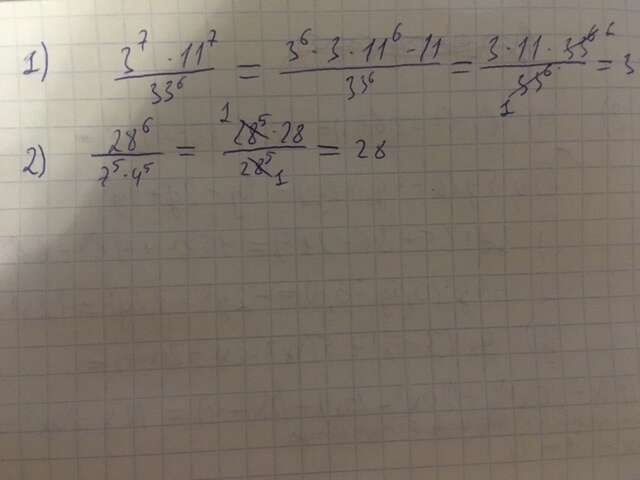 1) 3^7 · 11^7 / 33^6 = 3^6 · 3 · 11^6 · 11 / 33^6 = 3 · 11 · 33^6 / 33^6 1 = 3
2) 28^6 / 7^5 · 4^5 = 1 28^5 · 28 / 28^5 1 = 28